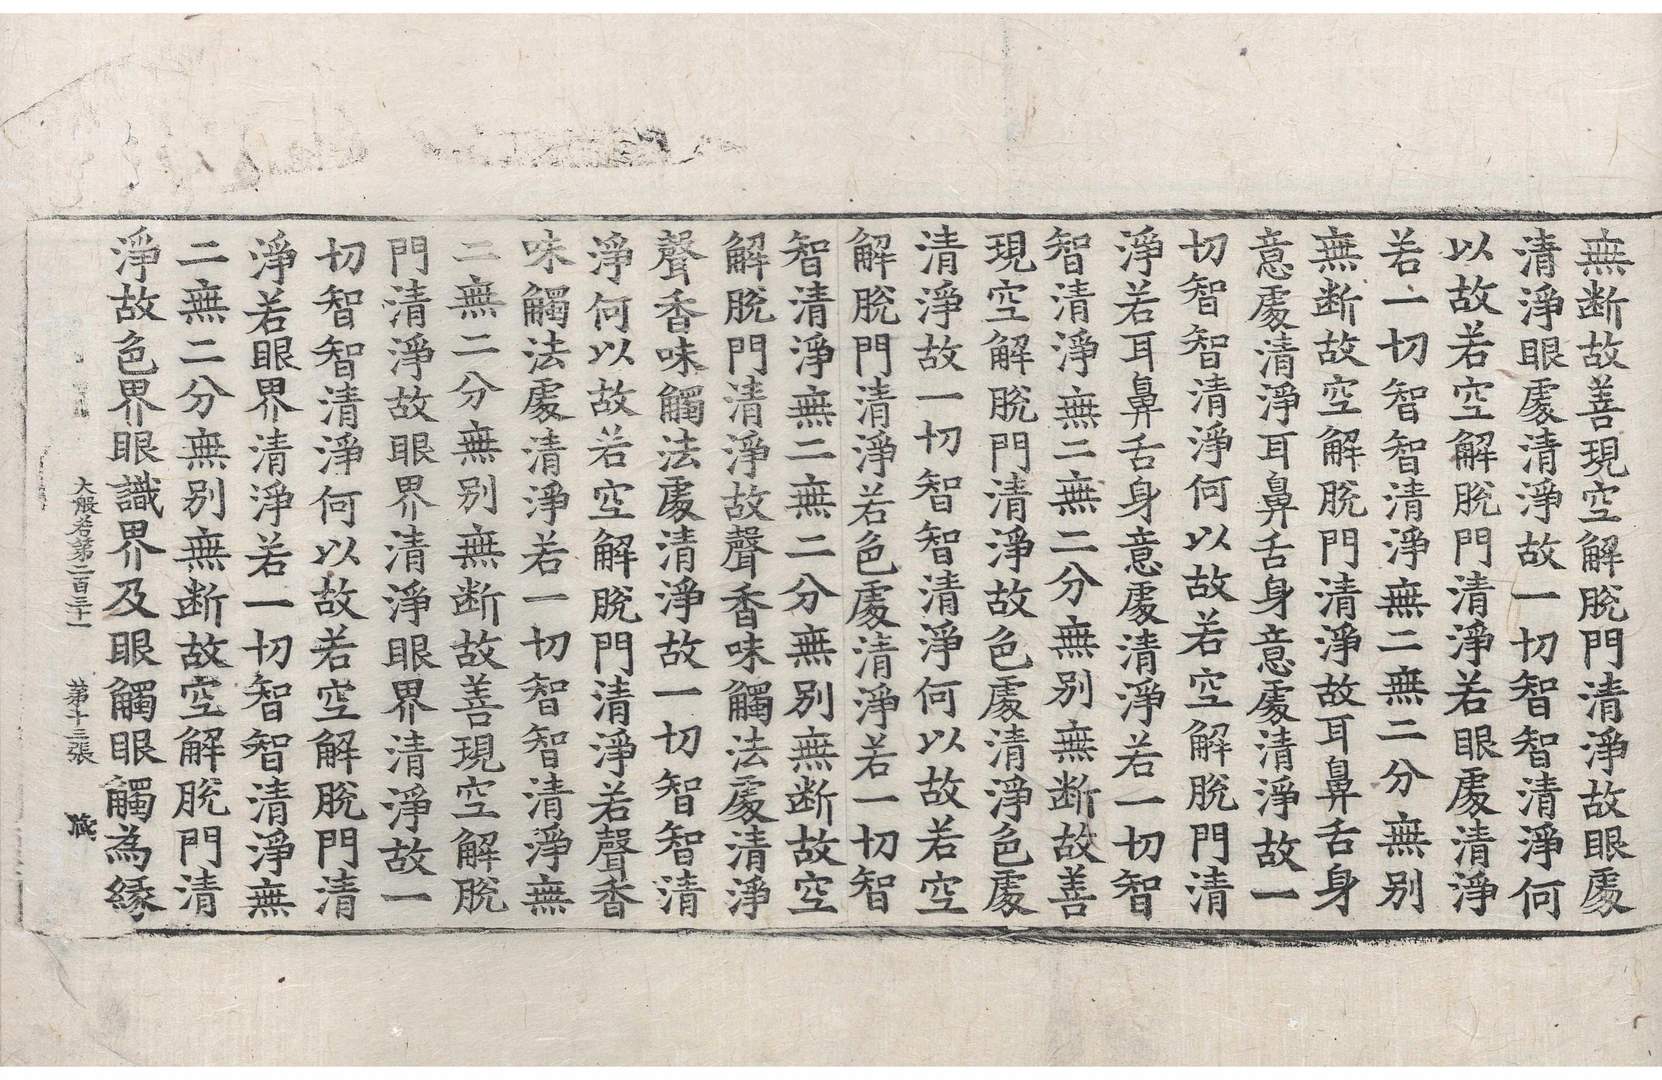 無断故善現空解脫門清淨故眼處
清淨眼處清淨故一切智智清淨何
以故若空解脫門清淨若眼處清淨
若一切智智清淨無二無二分無別
無断故空解脫門清淨故耳鼻舌身
意處清淨耳鼻舌身意處清淨故一
切智智清淨何以故若空解脫門清
淨若耳鼻舌身意處清淨若一切智
智清淨無二無二分無別無断故善
現空解脫門清淨故色處清淨色處
清淨故一切智智清淨何以故若空
解脫門清淨若色處清淨若一切智
智清淨無二無二分無別無断故空
解脫門清淨故聲香味觸法處清淨
聲香味觸法處清淨故一切智智清
淨何以故若空解脫門清淨若聲香
味觸法處清淨若一切智智清淨無
二無二分無別無断故善現空解脫
門清淨故眼界清淨眼界清淨故一
切智智清淨何以故若空解脫門清
淨若眼界清淨若一切智智清淨無
二無二分無別無断故空解脫門清
淨故色界眼識界及眼觸眼觸為緣
大般若第二百三十一 第十三張 藏